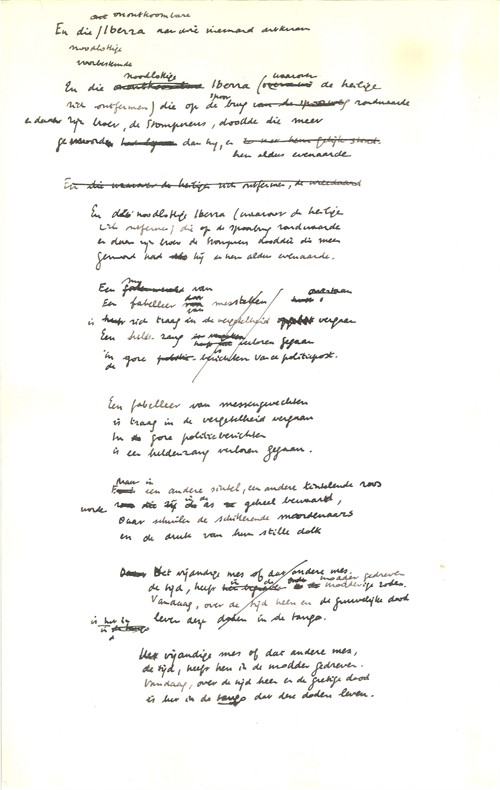 onontkoombare
En die Iberra aan wie niemand ontkwam
noodlottige
voorbestemde
noodlottige waarover
En die Iberra (de heilige
spoor
zich ontfermen) die op de brug rondwaarde
en daar zijn broer, de Stomp­neus, doodde die meer
dan hij, en
hem aldus evenaarde
En die noodlottige Iberra (waarover de heilige
zich ontfermen) die op de spoorbrug rondwaarde
en daar zijn broer de Stompneus doodde die meer
gemoord had hij en hem aldus evenaarde.
Een van
Een fabelleer messteken
is zich traag in de vergetelheid vergaan
Een helden zang verloren gegaan
In gore berichten van de politiepost.
de
Een fabelleer van messengevechten
is traag in de vergetelheid vergaan
In gore politieberichten
is een heldenzang verloren gegaan.
Maar in
een andere sintel, een andere tintelende roos
in de
worde as geheel bewaard,
Daar schuilen de schitterende moordenaars
en de druk van hun stille dolk
Het vijandige mes of dat andere mes,
de tijd, heeft in de modder gedreven
modderige
Vandaag, over de tijd heen en de gruwelijke dood
is het
leven deze doden in de tango.
Het vijandige mes of dat andere mes,
de tijd, heeft hen in de modder gedreven.
Vandaag, over de tijd heen en de gretige dood
is het in de tango dat deze doden leven.